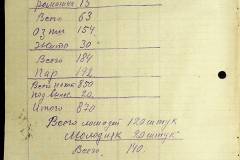 Ремонтных 15
Всего 63
Озты 154
Жито 30
Всего 184
Пар 172
Всего 850
Под 20
Итого 870
Всего лошадей 120 штук
Молодняк 20 штук
Всего 140.